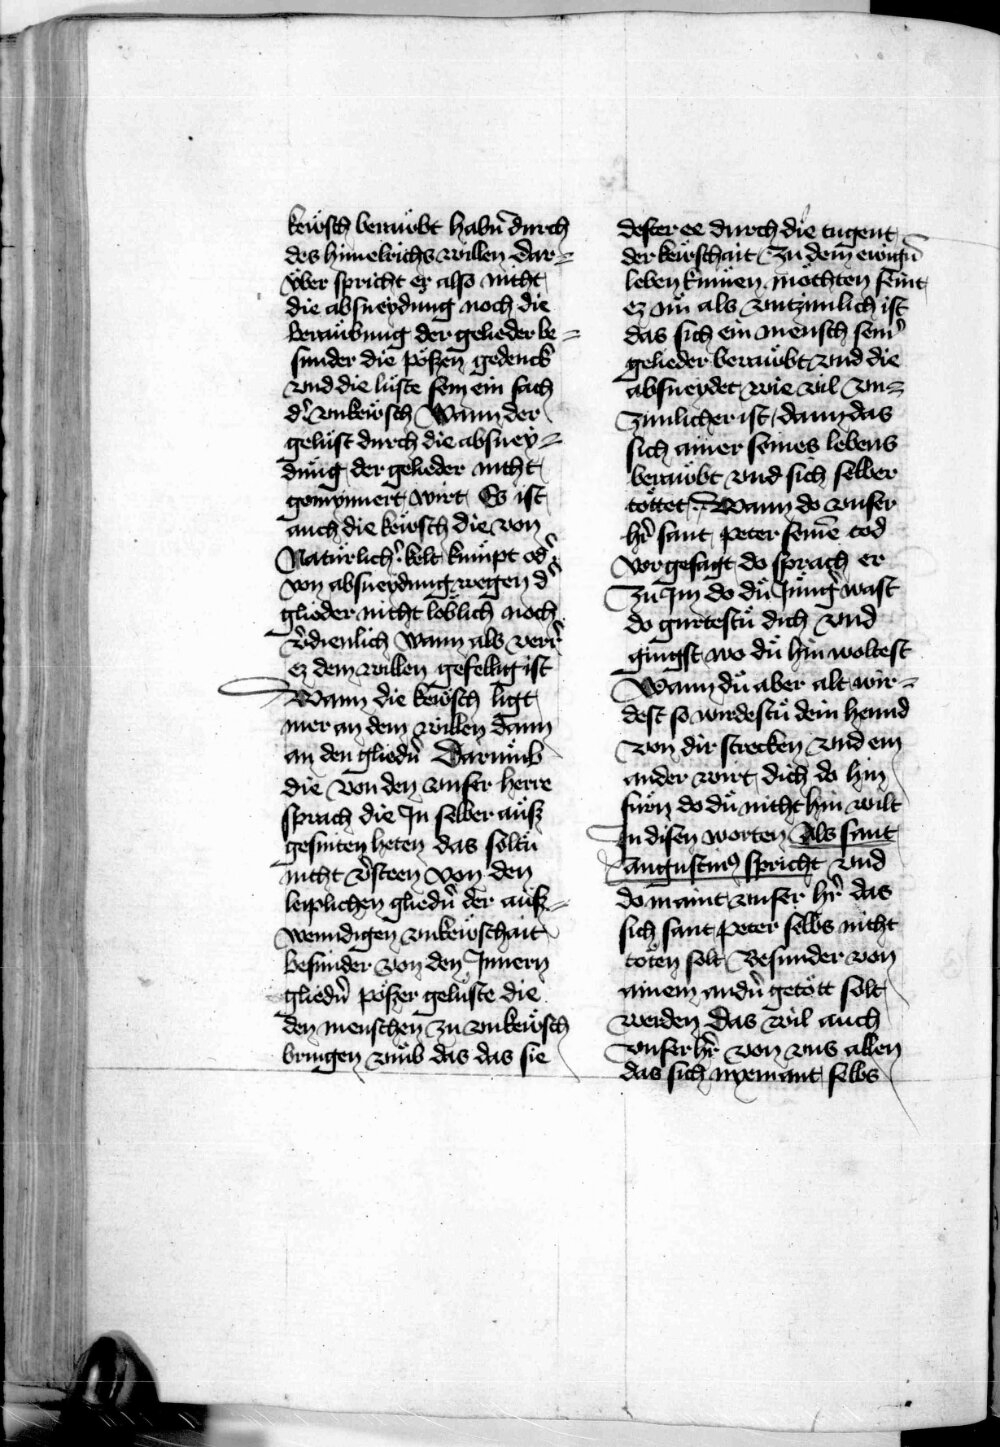 keẅsch beraubt habn̄ durch
des himelrichs willen dar=
v̈ber spricht er also nicht
die absneydung noch die
beraubung der gelieder be=
sunder die pöszen gedenck
vnd die lüste sein ein sach
d' vnkeẅsch Wann der
gelust durch die absney=
dung der gelieder nicht
gemynnert wirt Es ist
auch die keẅsch die von
Natürlich' kelt kumpt od'
von absneydung wegen d'
glieder nicht löblich noch
v'dienlich Wann als verr
ez dem willen gefellig ist
Wann die keẅsch ligt
mer an dem willen dann
an den gliedn̄ Darumb
die von den vnser herre
sprach die In selber auß
gesniten heten das soltu
nicht v'steen von den
leiplichen gliedn̄ der auß=
wenndigen vnkeẅschait
besunder von den Innern
gliedn̄ pößer geluste die
den menschen zu vnkeẅsch
bringen vmb das das sie
dester ee durch die tugent
der keẅschait Zu dem ewign̄
leben kumen möchten seint
ez nü als vntzimlich ist
das sich ein mensch sein'
gelieder beraubt vnd die
absneydet wie vil vn=
zimlicher ist dann das
sich ainer seines lebens
beraubt vnd sich selber
töttet Wann do vnser
hr̄ sant peter seinē tod
vorgesagt do sprach er
Zu Im do du Jung wast
do gurtestu dich vnd
gingst wo du hin woltest
Wann du aber alt wir=
dest so wirdestu dein hennd
von dir strecken vnd ein
ander wirt dich do hin
furn do du nicht hin wilt
In disen worten Als sant
augustin9 spricht vnd
do maint vnser hr̄ das
sich sant peter selbs nicht
töten solt Besunder von
ainem andn̄ getött solt
werden Das wil auch
vnser hr̄ von vns allen
das sich nyemant selbs